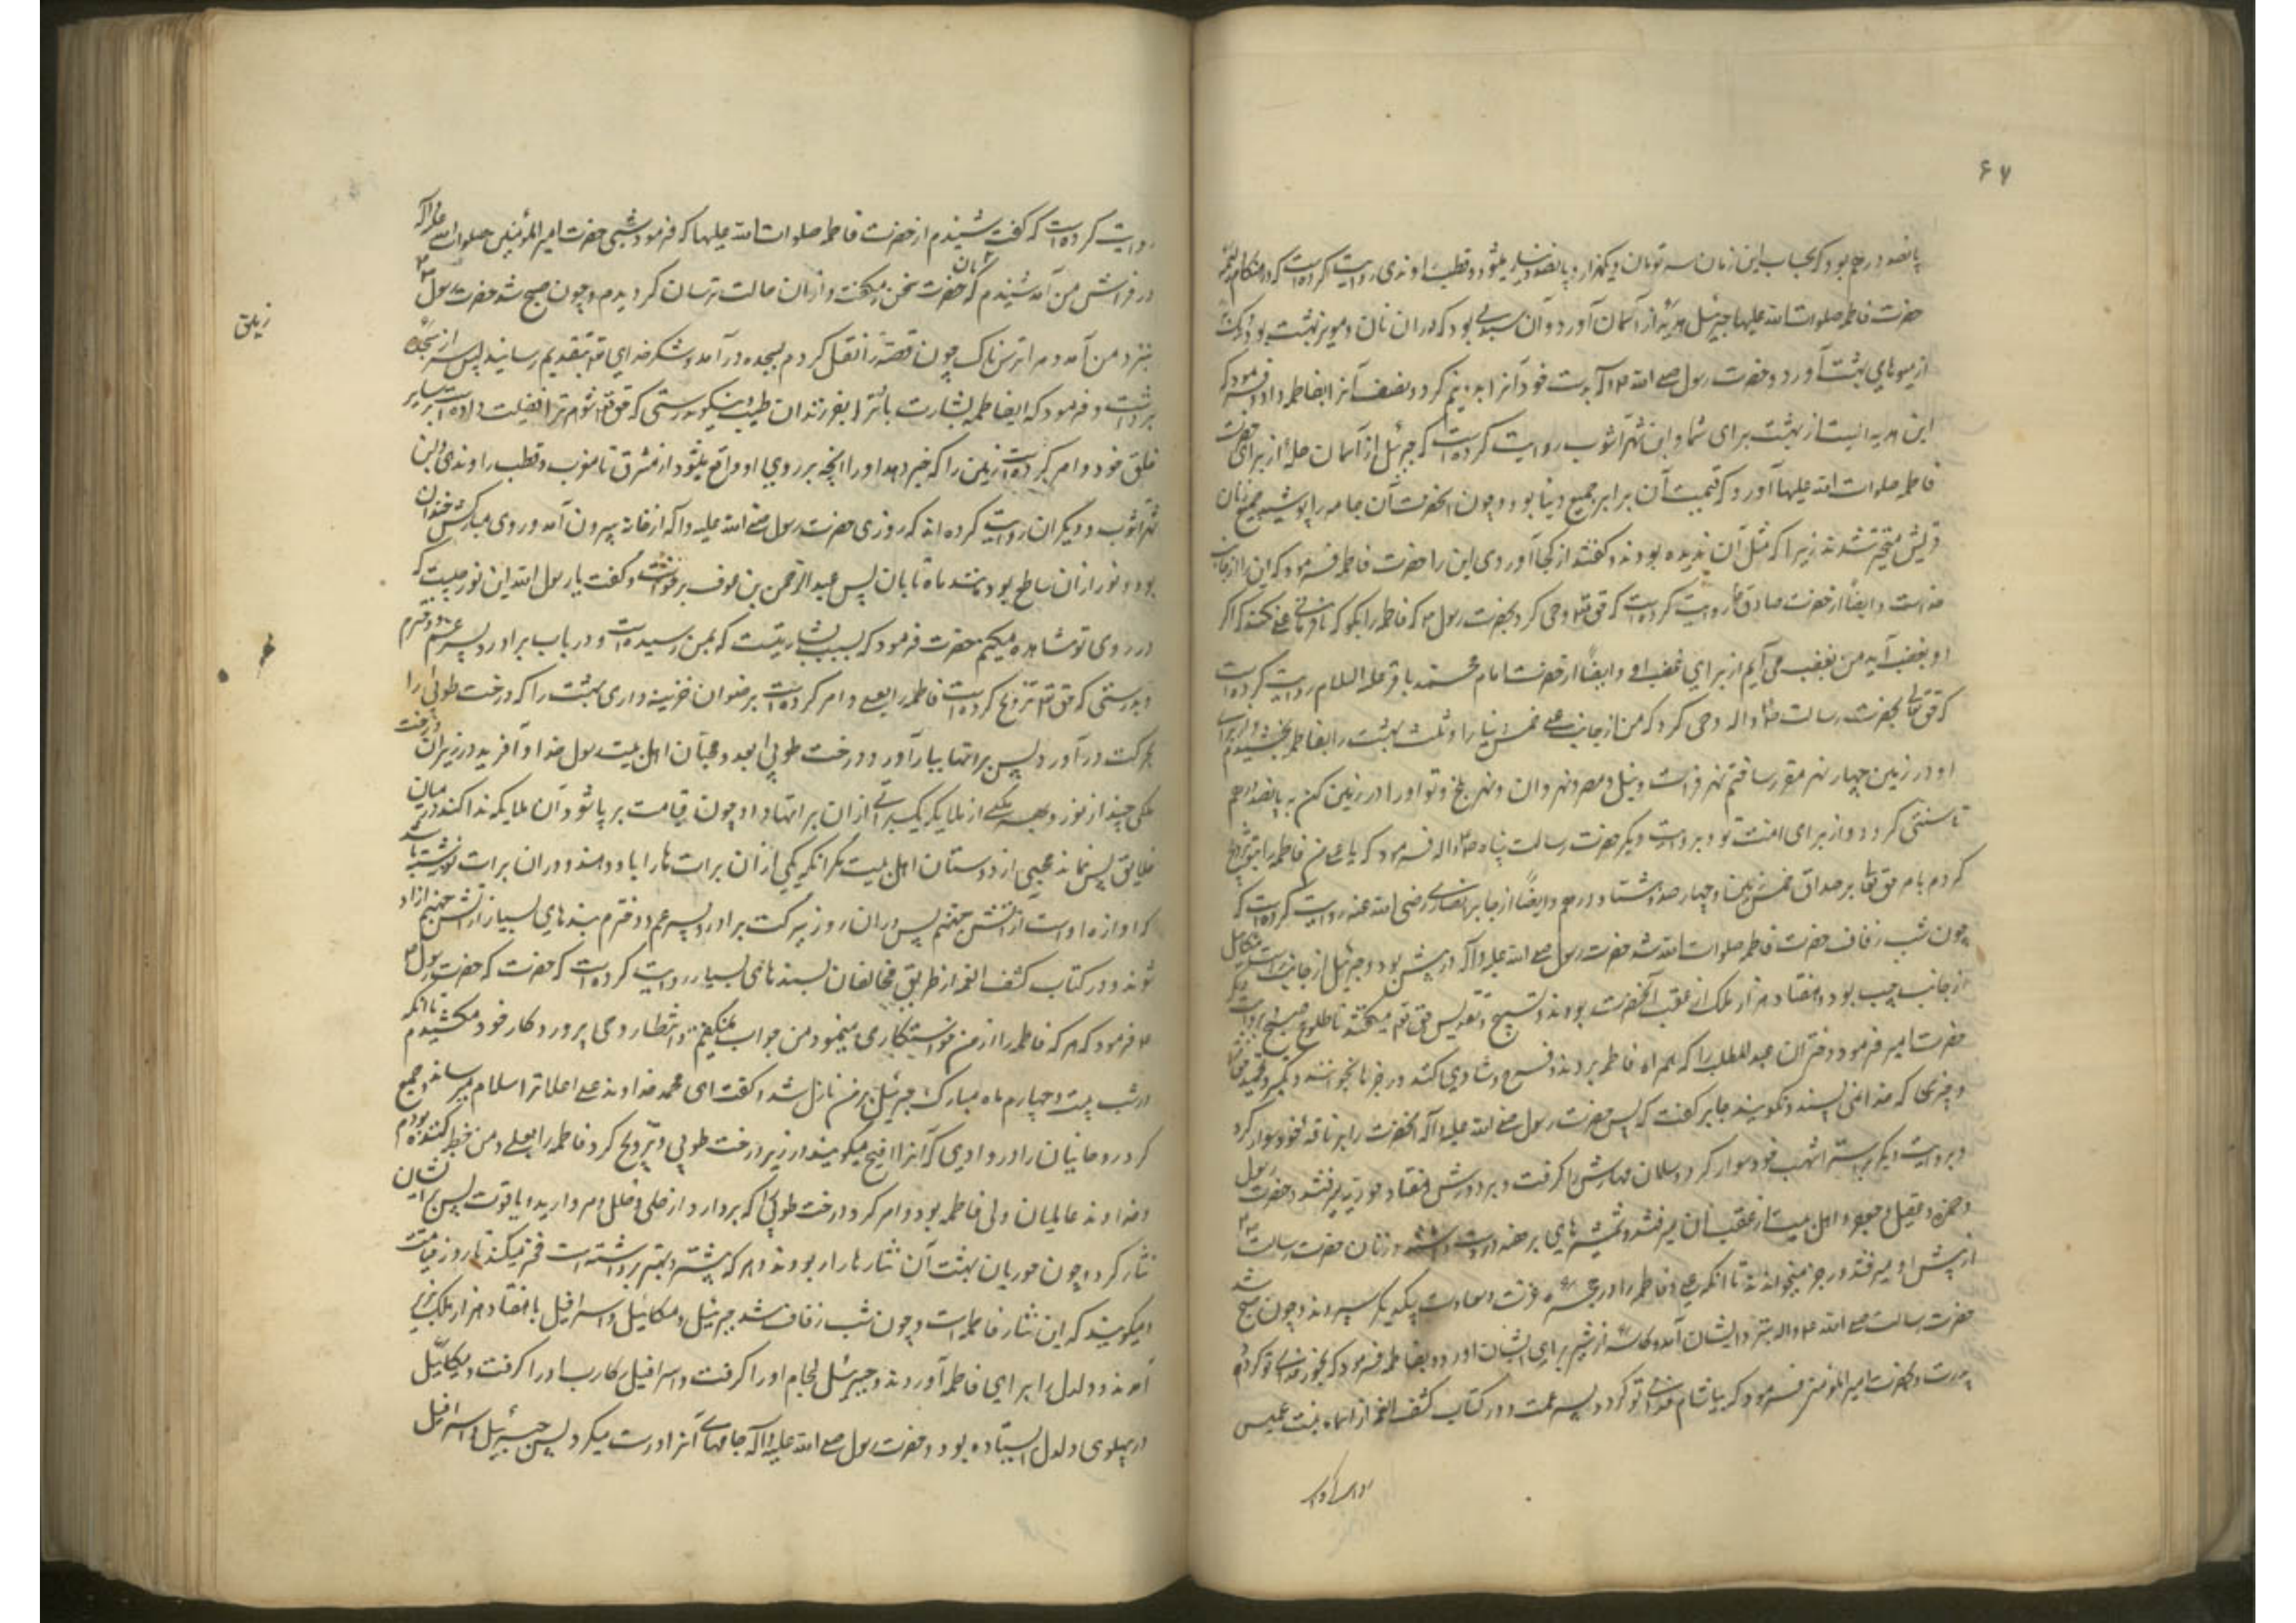 ۶۷
پانصد درهم بود که بحساب این زمان سه تومان و یکهزار و پانصد دینار میشود و قطب راوندی روایت کرده است که در هنگام زفاف
حضرت فاطمه صلوات الله علیها جبرئیل هدیه از آسمان آورد و آن سبدی بود که در آن نان و مویز بهشت بود
از میوهای بهشت آورد و حضرت رسول صلی الله علیه و آله بدست خود آنرا بدو نیم کرد و نصف آنرا بفاطمه داد و فرمود که
این هدیه ایست از بهشت برای شما و ابن شهرآشوب روایت کرده است که جبرئیل از آسمان حله از برای حضرت
فاطمه صلوات الله علیها آورد که قیمت آن برابر جمیع دنیا بود و چون آنحضرت آن جامه را پوشید جمیع زنان
قریش متحیر شدند زیرا که مثل آن ندیده بودند و گفتند از کجا آوردی این را حضرت فاطمه فرمود که این از جانب
خداست و ایضاً از حضرت صادق ع روایت کرده است که حق تع وحی کرد بحضرت رسول ص که فاطمه را بگو که نافرمانی علی نکند که اگر
او بغضب آید من بغضب می آیم از برای غضب او و ایضاً از حضرت امام محمد باقر علیه السلام روایت کرده است
که حق تعالی بحضرت رسالت ص و اله وحی کرد که من از جانب علی خمس دنیا را و ثلث بهشت را بفاطمه بخشیدم و از برای
او در زمین چهار نهر مقرر ساختم نهر فرات و نیل مصر و نهروان و نهر بلخ و تو او را در زمین کن به پانصد درهم
تا سنتی گردد از برای امت تو و بروایت دیگر حضرت رسالت پناه ص و اله فرمود که یا علی من فاطمه را بتو تزویج
کردم بامر حق تعالی بر صداق خمس زمین و چهارصد و هشتاد درهم و ایضاً از جابر انصاری رضی الله عنه روایت کرده است که
چون شب زفاف حضرت فاطمه صلوات الله شد حضرت رسول صلی الله علیه و آله در پیش بود و جبرئیل از جانب راست و میکائیل
از جانب چپ بود و هفتاد هزار ملک از عقب آنحضرت بودند و تسبیح و تقدیس حق تع میگفتند تا طلوع صبح و بروایت دیگر
حضرت امیر فرمود دختران عبدالمطلب را که همراه فاطمه بروند و فرح و شادی کنند و رجز بخوانند و تکبیر و تحمید
و چیزی که خدا نمی پسند نگویند جابر گفت که پس حضرت رسول صلی الله علیه و آله آنحضرت را بر ناقه خود سوار کرد
و بروایت دیگر بر استر اشهب خود سوار کرد و سلمان مهارش را گرفت و بر دورش هفتاد حوریه میرفتند و حضرت رسول
و حمزه و عقیل و جعفر و اهل بیت از عقب ایشان میرفتند و شمشیرهای برهنه در دست داشتند و زنان حضرت رسالت
از پیش او میرفتند و رجز میخواندند تا آنکه علی و فاطمه را در حجره عزت و سعادت بیکدیگر سپردند و چون صبح شد
حضرت رسالت صلی الله ع و اله بنزد ایشان آمد و کاسه از شیر برای ایشان آورد و بفاطمه فرمود که بخور فدای تو گردد
پدرت و بحضرت امیرالمومنین فرمود که بیاشام فدای تو گردد پسر عمت و در کتاب کشف الغمه از اسماء بنت عمیس
روایت کرده است
روایت کرده است که گفت شنیدم از حضرت فاطمه صلوات الله علیها که فرمود شبی حضرت امیر المؤمنین صلوات الله علیه و آله
در فراش من آمد شنیدم که زمین بآن حضرت سخن میگفت و ازان حالت ترسان گردیدم و چون صبح شد حضرت رسول ص
بنزد من آمد و مرا ترسناک چون قصه را نقل کردم بسجده در آمد و شکر خدای تع بتقدیم رسانید پس سر از سجده
برداشت و فرمود که ایفاطمه بشارت باد ترا بفرزندان طیب نیکو بدرستی که حق تع شوهر ترا فضیلت داده است بر سایر
خلق خود و امر کرده است زمین را که خبر دهد او را آنچه بر روی او واقع میشود از مشرق تا مغرب و قطب راوندی و ابن
شهرآشوب و دیگران روایت کرده اند که روزی حضرت رسول صلی الله علیه و آله از خانه بیرون آمد و روی مبارکش خندان
بود و نور ازان ساطع بود مانند ماه تابان پس عبدالرحمن بن عوف برخواست و گفت یا رسول الله این نور چیست که
در روی تو مشاهده میکنم حضرت فرمود که بسبب بشارتیست که بمن رسیده است در باب برادر و پسر عم و دخترم
و بدرستی که حق تع تزویج کرده است فاطمه را بعلی و امر کرده است رضوان خزینه داری بهشت را که درخت طوبی را
بحرکت در آورد پس براتها ببار آورد درخت طوبی بعدد محبان اهل بیت رسول خدا و آفرید در زیر آن درخت
ملکی چند از نور و بهر یکی از ملایکه یک براتی ازان براتها داد چون قیامت بر پا شود آن ملایکه ندا کنند در میان
خلایق پس نماند محبی از دوستان اهل بیت مگر آنکه یکی ازان برات ها را باو دهند و دران برات نوشته باشد
که او آزاد است از آتش جهنم پس دران روز ببرکت برادر و پسر عم و دخترم بندهای بسیار از آتش جهنم آزاد
شوند و در کتاب کشف الغمه از طریق مخالفان بسندهای بسیار روایت کرده است که حضرت رسول ص
فرمود که هر که فاطمه را از من خواستگاری مینمود من جواب نمیگفتم و انتظار وحی پروردگار خود میکشیدم تا آنکه
در شب بیست و چهارم ماه مبارک جبرئیل بر من نازل شد و گفت ای محمد خداوند علی اعلا ترا سلام میرساند و جمیع
کرد روحانیان را در وادیی که آنرا افیح میگویند در زیر درخت طوبی و تزویج کرد فاطمه را بعلی و من خطبه کننده بودم
و خداوند عالمیان ولی فاطمه بود و امر کرد درخت طوبی را که بردارد از حلی و حلل و مروارید و یاقوت پس بر ایشان
نثار کرد و چون حوریان بهشت آن نثارها را ربودند و هر که بیشتر و بهتر برداشته است فخر میکند تا روز قیامت
و میگویند که این نثار فاطمه است و چون شب زفاف شد جبرئیل و میکائیل و اسرافیل با هفتاد هزار ملک بزیر
آمدند و دلدل را برای فاطمه آوردند و جبرئیل لجام او را گرفت و اسرافیل رکاب او را گرفت و میکائیل
در پهلوی دلدل ایستاده بود و حضرت رسول صلی الله علیه و آله جامهای آنرا درست میکرد پس جبرئیل و اسرافیل